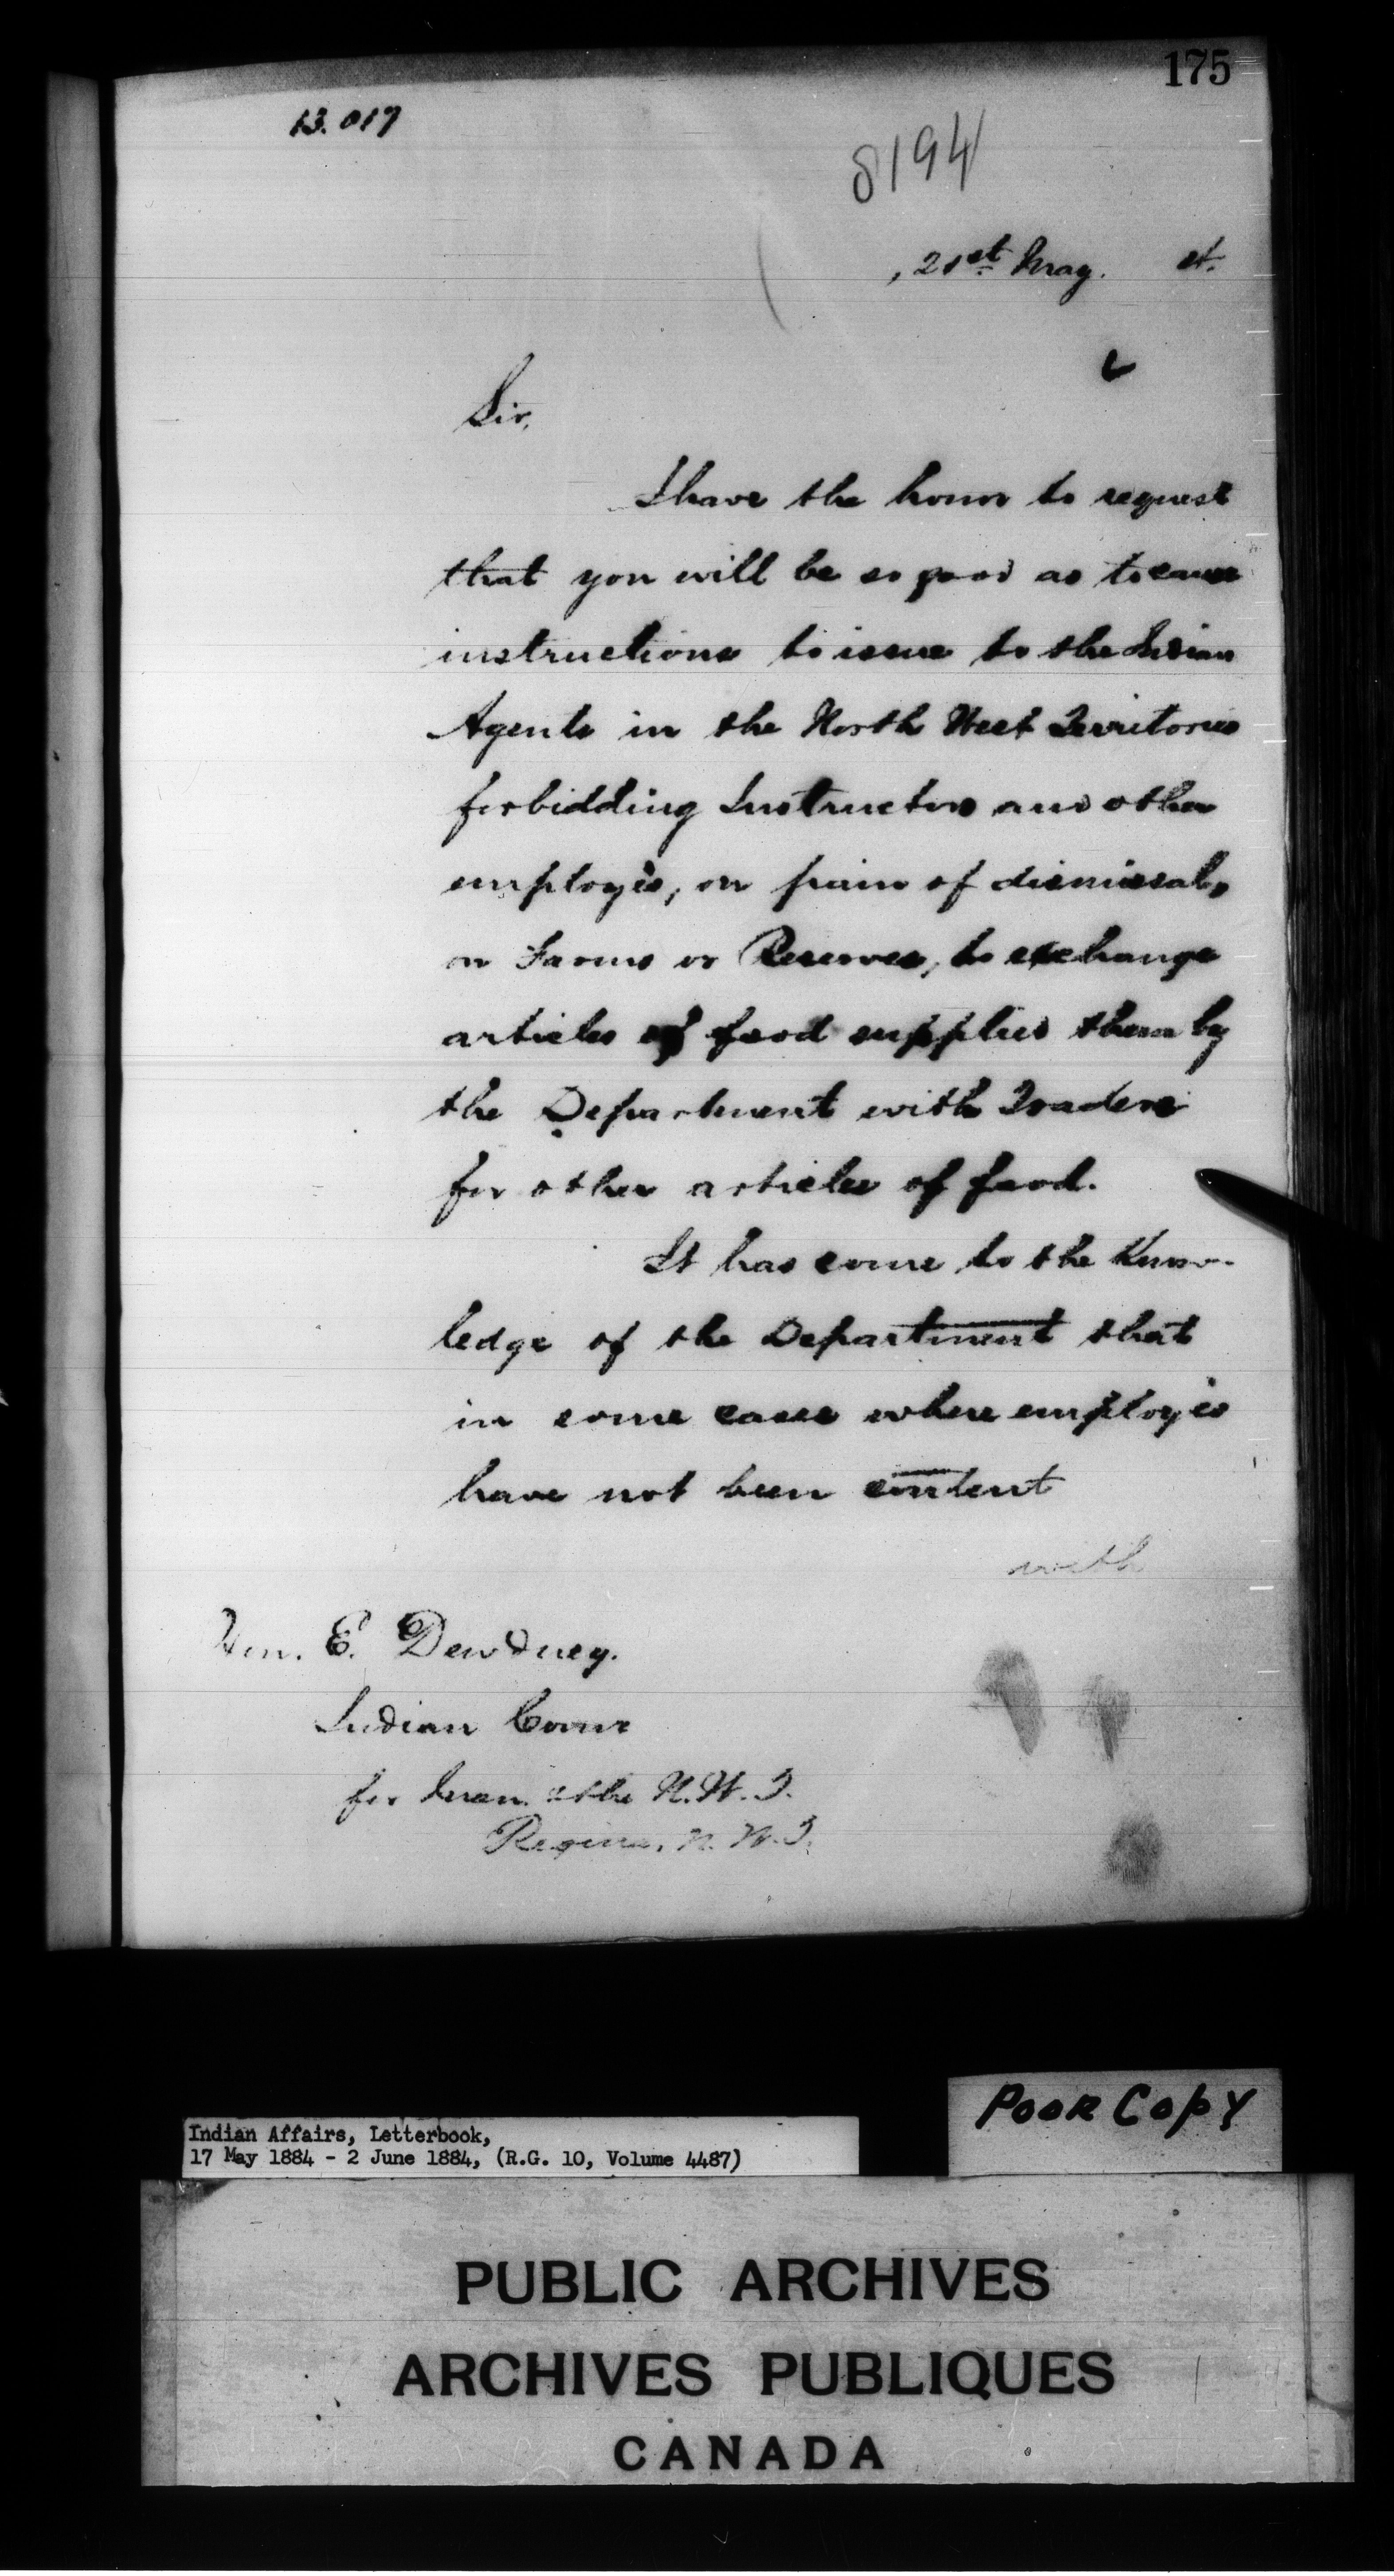 175
13.017
8194
, 21st May.
Sir,
I have the honor to request
that you will be so good as to cause
instructions to issue to the Indian
Agents in the North West Territories
forbidding Instructors and other
employés, on pain of dismissal,
on Farms or Reserves, to exchange
articles of food supplied them by
the Department with Traders
for other articles of food.
It has come to the Know-
ledge of the Department that
in some cases where employés
have not been content
with
Hon. E. Dewdney.
Indian Comr
for Man. & the N.W.T.
Regina, N.W.T.
Poor Copy
Indian Affairs, Letterbook,
17 May 1884 - 2 June 1884, (R.G. 10, Volume 4487)
PUBLIC ARCHIVES
ARCHIVES PUBLIQUES
CANADA